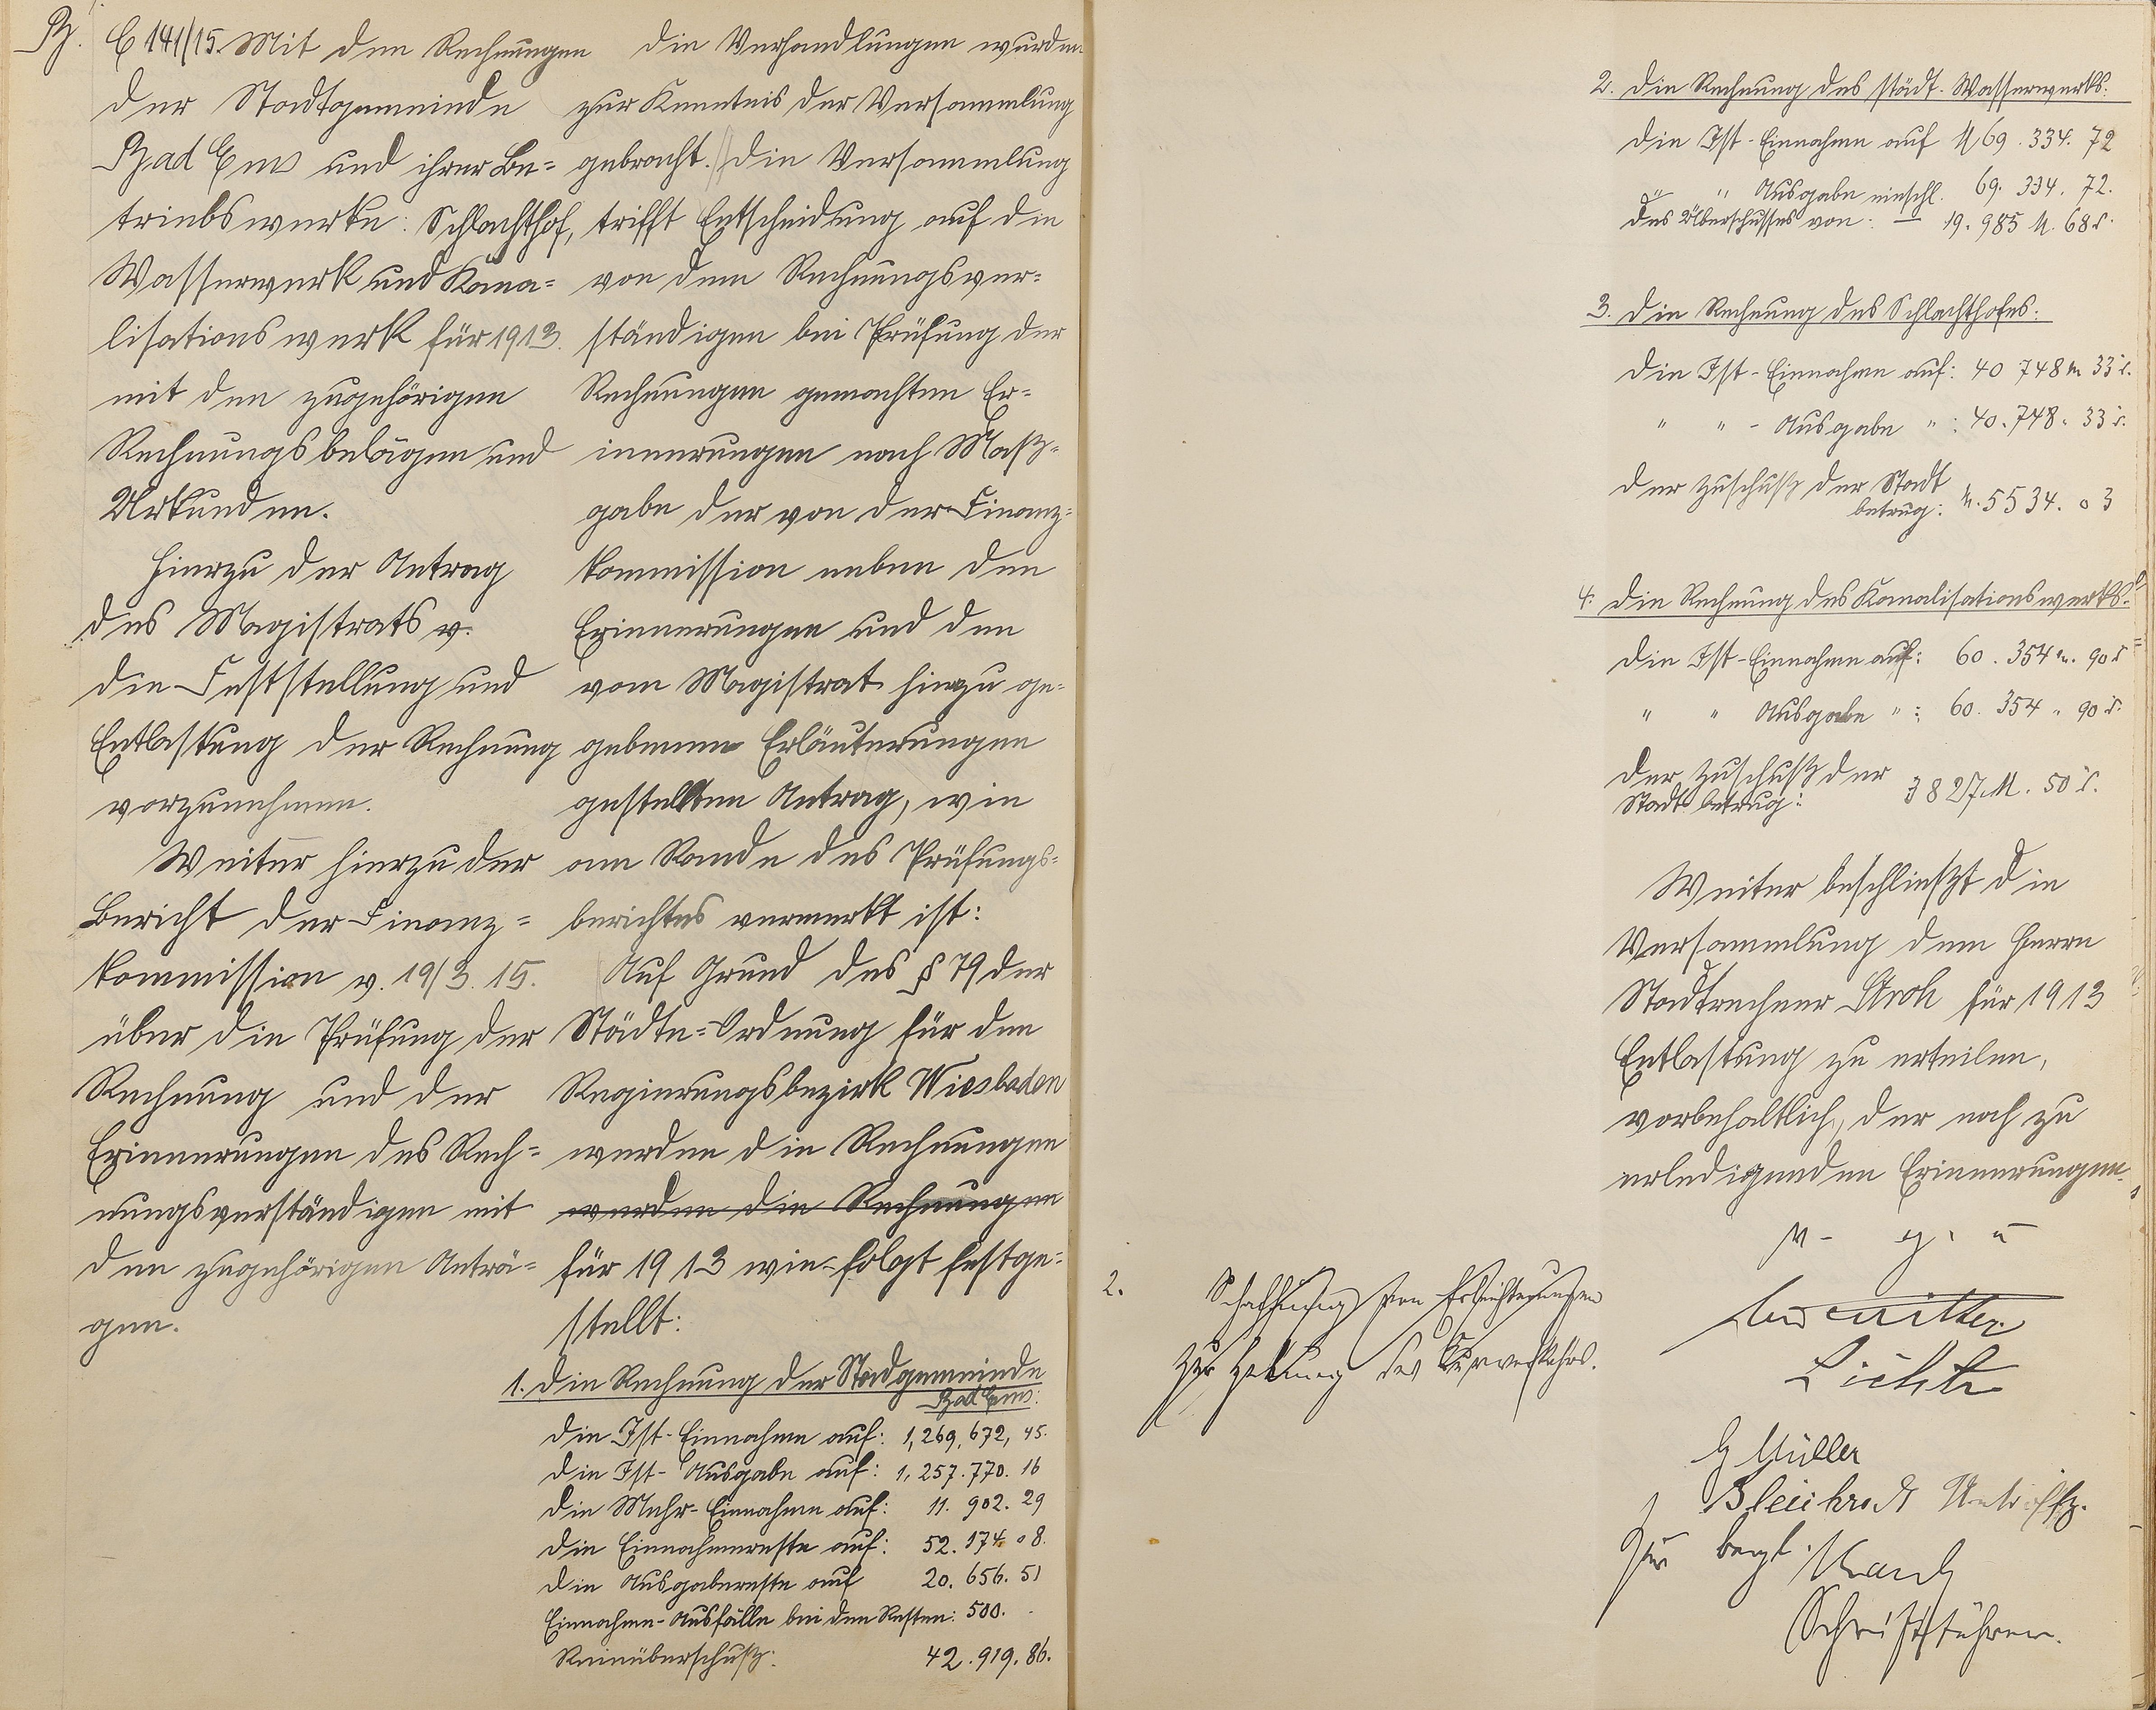 B.
C 141/15. Mit den Rechnungen
der Stadtgemeinde
Bad Ems und ihrer Be-
triebswerke: Schlachthof,
Wasserwerk und Kana-
lisationswerk für 1913.
mit den zugehörigen
Rechnungsbelägen und
Urkunden.
Hierzu der Antrag
des Magistrats v.
die Feststellung und
Entlastung der Rechnung
vorzunehmen.
Weiter hierzu der
Bericht der Finanz-
kommission v. 19/3. 15.
über die Prüfung der
Rechnung und der
Erinnerungen des Rech-
nungsverständigen mit
den zugehörigen Anträ-
gen.
Die Verhandlungen wurden
zur Kenntnis der Versammlung
gebracht. // Die Versammlung
trifft Entscheidung auf die
von dem Rechnungsver-
ständigen bei Prüfung der
Rechnungen gemachten Er-
innerungen nach Maß-
gabe der von der Finanz-
kommission neben den
Erinnerungen und den
vom Magistrat hinzu ge-
gebenen Erläuterungen
gestellten Antrag, wie
am Rande des Prüfungs-
berichtes vermerkt ist:
Auf Grund des § 79 der
Städte-Ordnung für den
Regierungsbezirk Wiesbaden
werden die Rechnungen
werden die Rechnungen
für 1913 wie folgt festge-
stellt:
1. Die Rechnung der Stadgemeinde
Bad Ems:
die Ist-Einnahme auf: 1,269,672, 45.
die Ist-Ausgabe auf: 1,257.770. 16
die Mehr-Einnahme auf: 11. 902. 29
die Einnahmereste auf: 52. 174. 08.
die Ausgabereste auf 20. 656. 51
Einnahme-Ausfälle bei den Resten: 500.
Reinüberschuß: 42. 919. 86.
2. Die Rechnung des städt. Wasserwerks:
die Ist-Einnahme auf M 69. 334. 72
" " Ausgabe einschl. 69. 334. 72.
des Überschusses von: — 19. 985 M. 68 δ.
3. Die Rechnung des Schlachthofes:
die Ist-Einnahme auf: 40 748 M 33 δ.
" " - Ausgabe " : 40. 748. 33 δ.
der Zuschuß der Stadt
betrug: M. 5534. 03
4. Die Rechnung des Kanalisationswerks:
die Ist-Einnahme auf: 60. 354 M. 90 δ
" " Ausgabe " : 60. 354 " 90 δ.
der Zuschuß der
Stadt betrug: 3827 M. 50 δ.
Weiter beschließt die
Versammlung dem Herrn
Stadtrechner Stroh für 1913
Entlastung zu erteilen,
vorbehaltlich, der noch zu
erledigenden Erinnerungen.
v. g. u
2. Schaffung von Erleichterungen
zur Hebung des Kurverkehrs.
G Müller
Für begl.
Schriftführer.